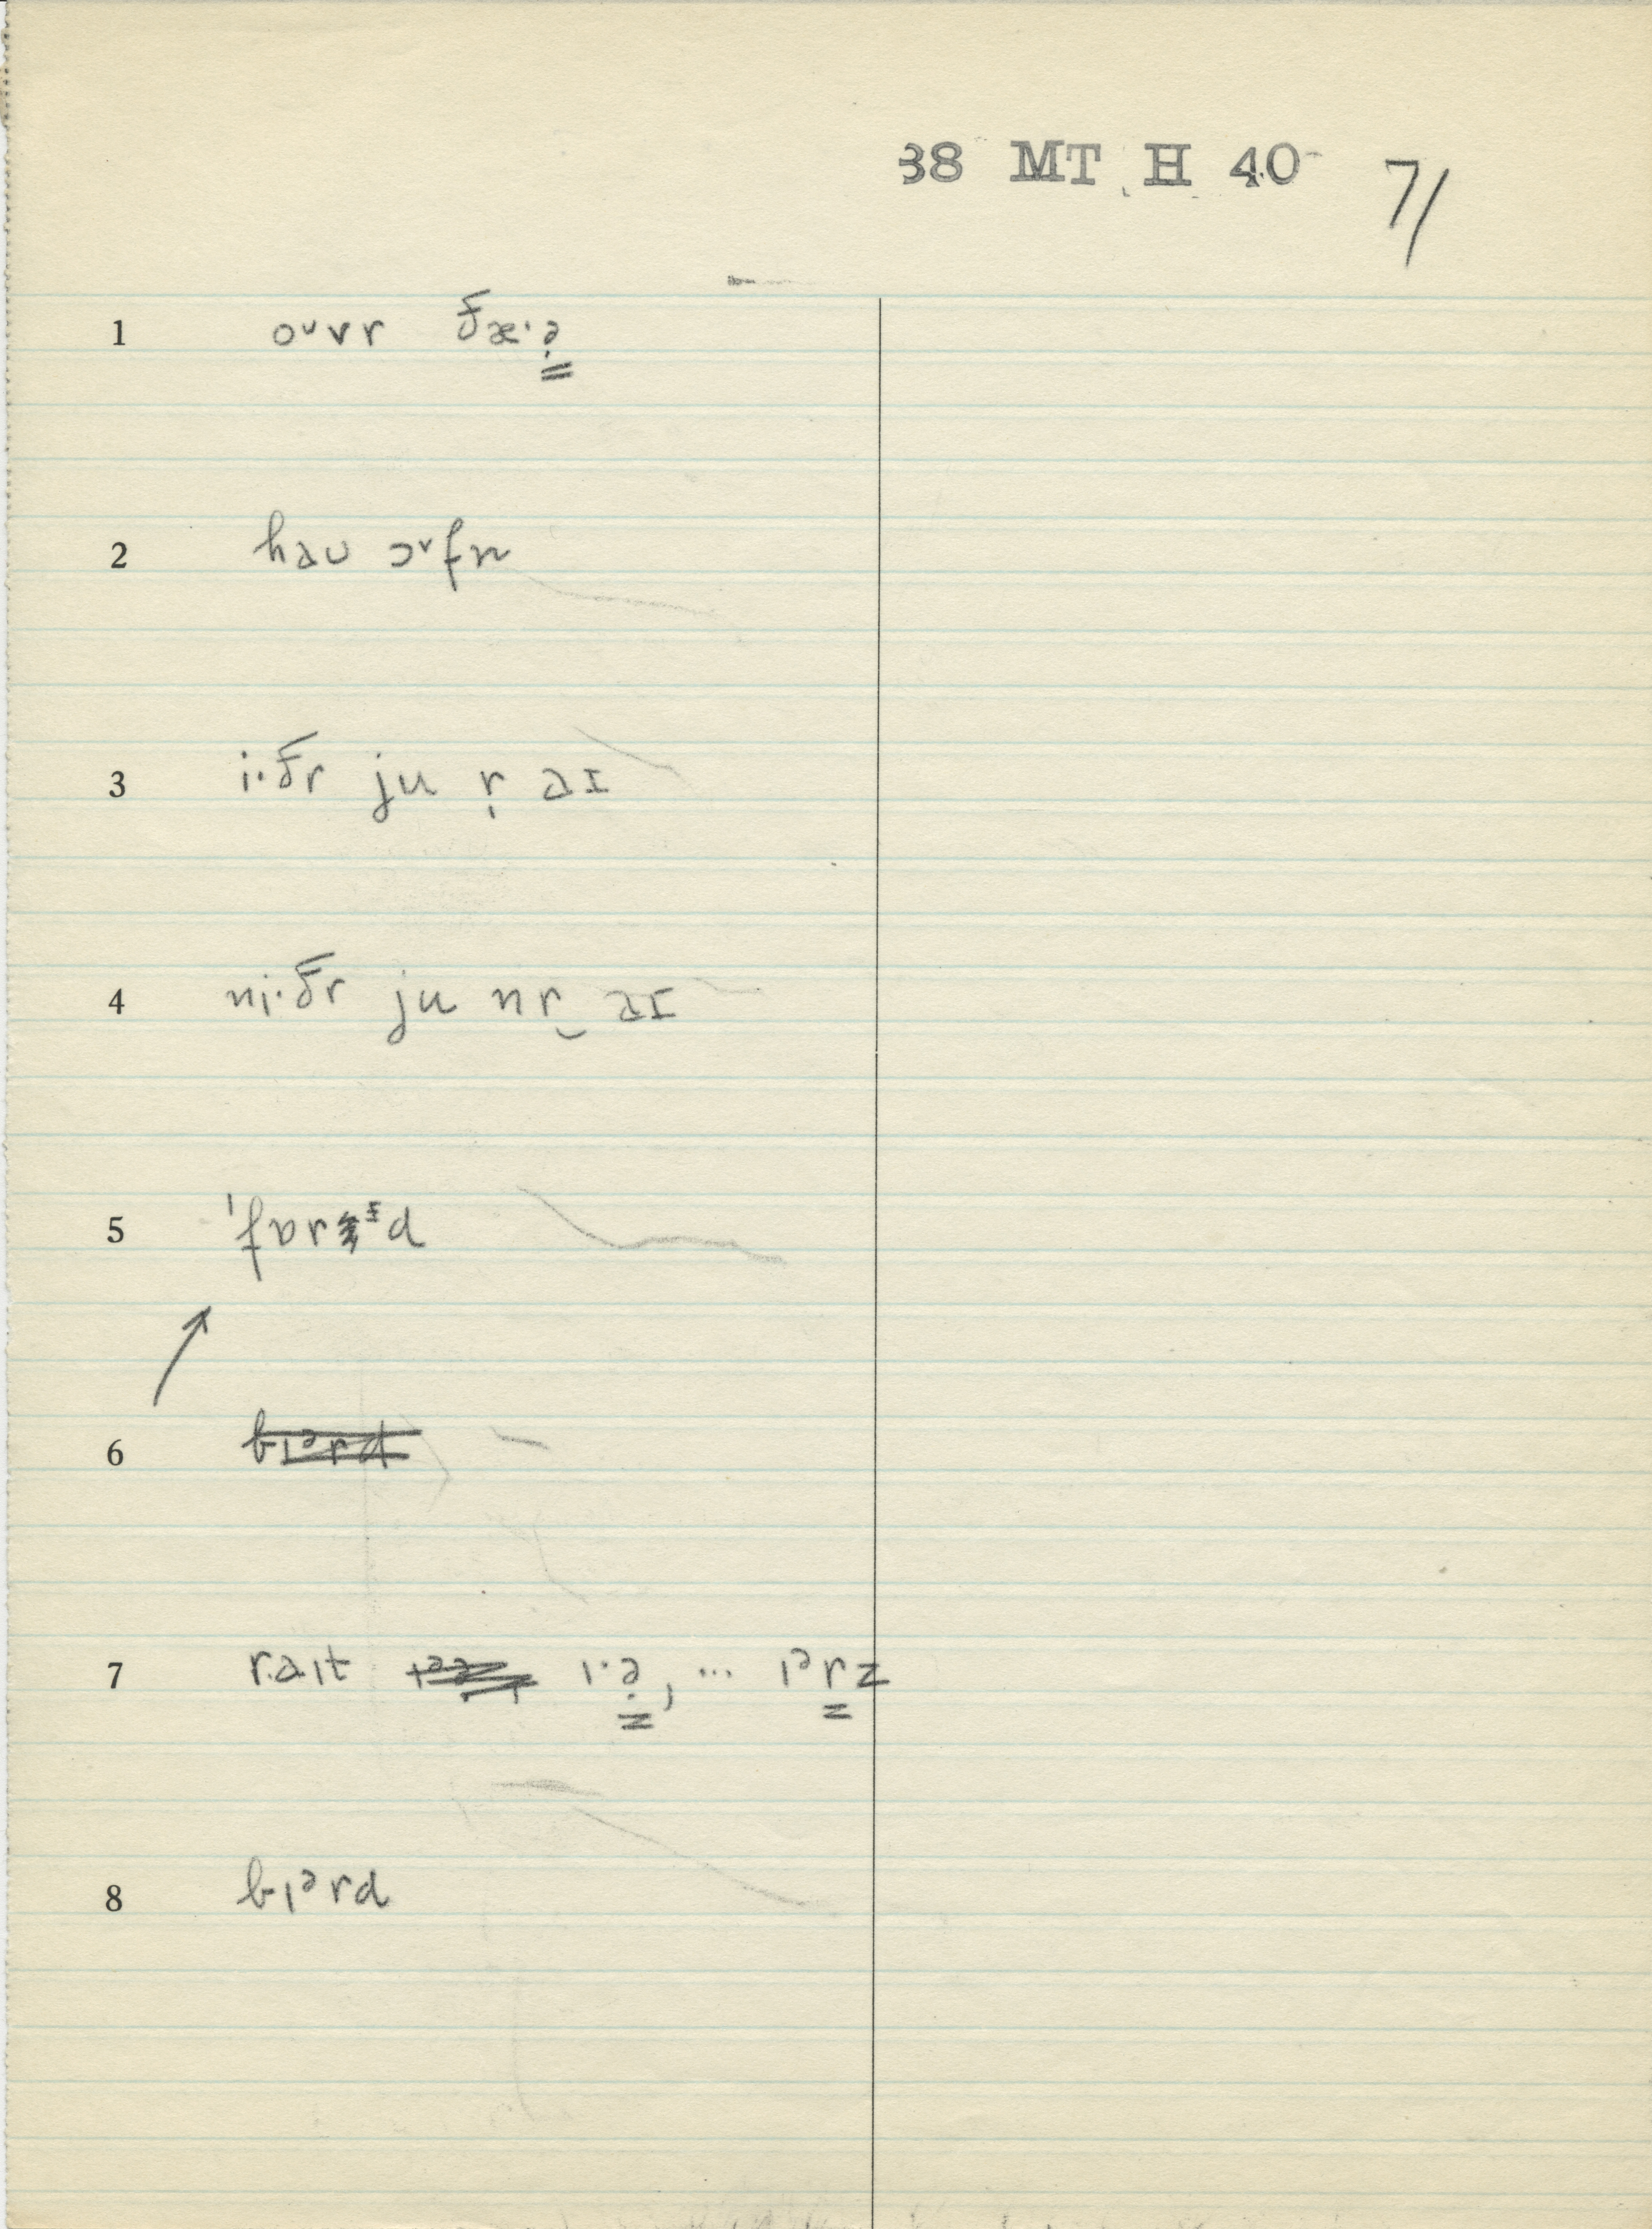 38 MT H 40 71
1 oᵘvr ðæ·ə̣
2 hau ɔᵛfn
3 i·ðr ju ṛ aɪ
4 ni·ðr ju nr̮ aɪ
5 ˈfɒrᵻd
6 bɪᵊrd
7 raɪt ɪ·ə̣, ... ɪᵊrz
8 bɪᵊrd